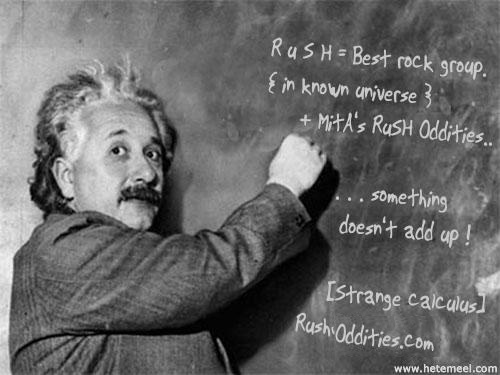 RuSH = Best rock group.
{ in known universe }
+ MitA's RuSH Oddities..
. . . something
doesn't add up !
[Strange calculus]
Rush-Oddities.com
www.hetemeel.com